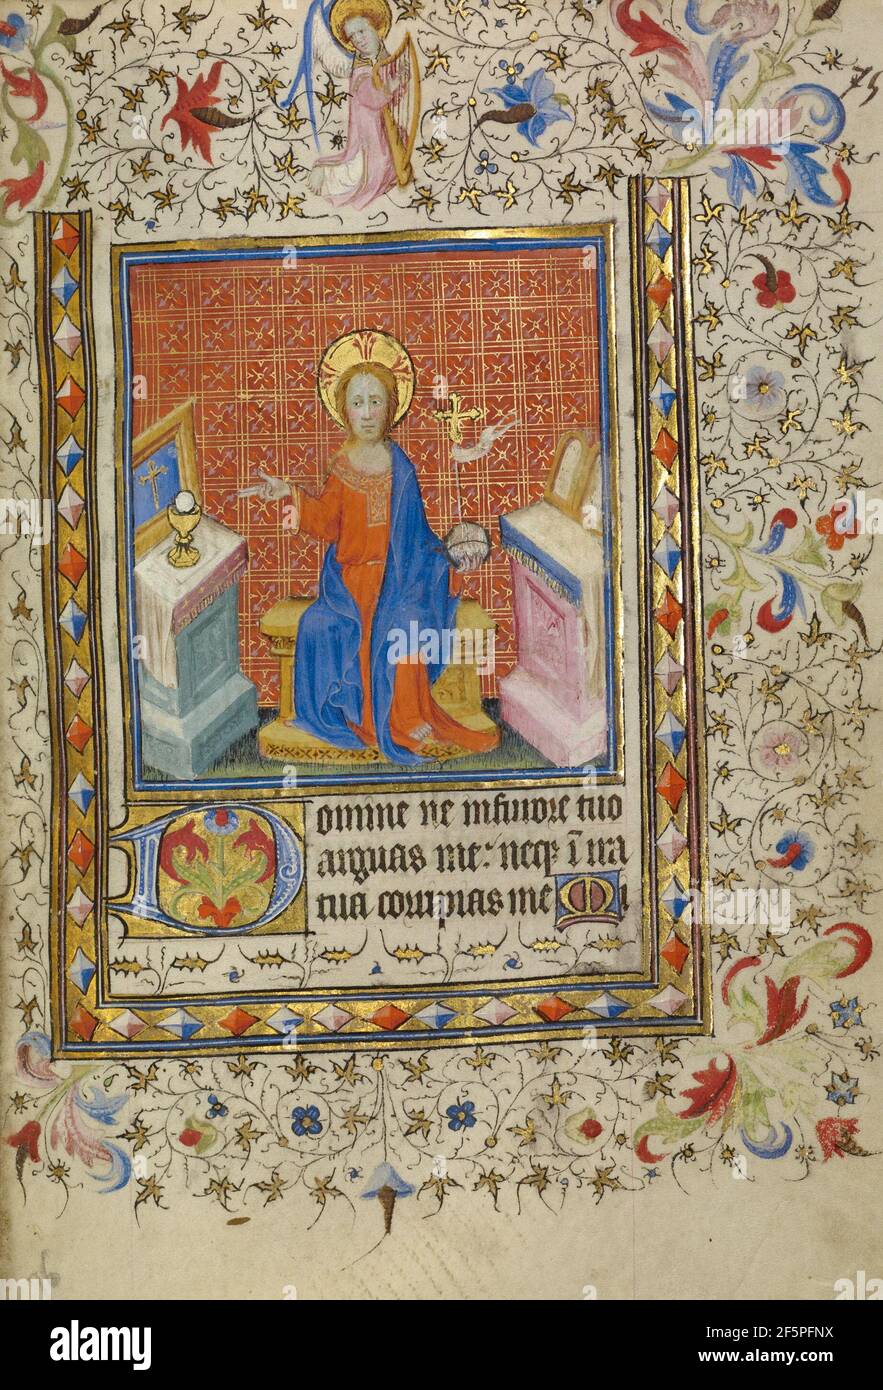 75
Domine ne in furore tuo
arguas me: neqȝ ĩ ira
tua corripias me Mi
alamy
Image ID: 2F5PFNX
www.alamy.com